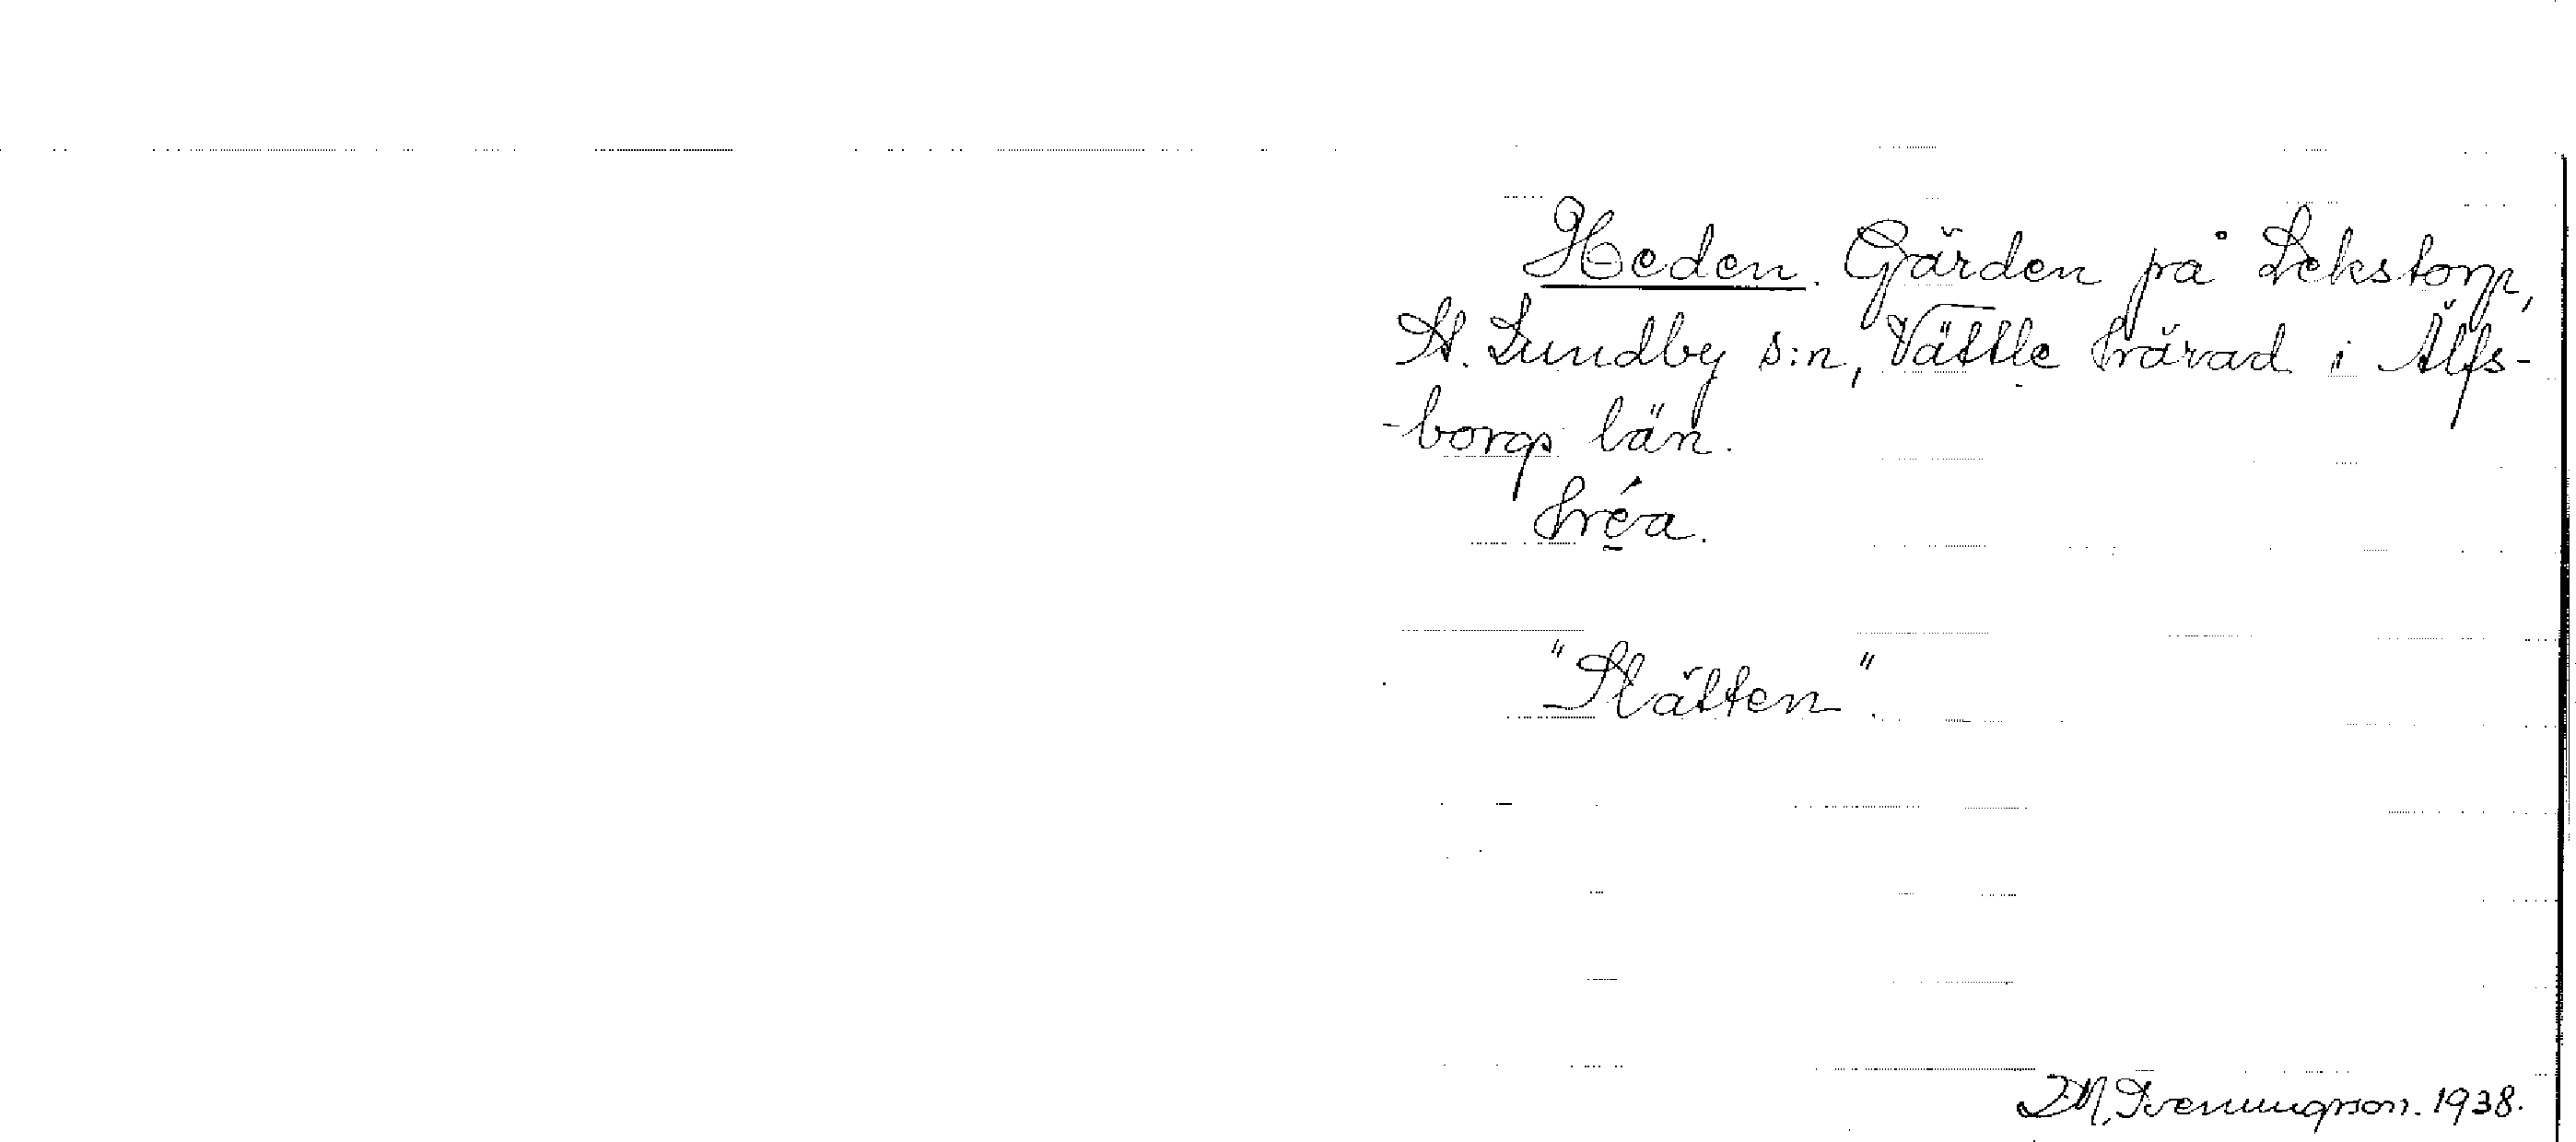 Heden. Gärden på Lekstorp,
St. Lundby s:n, Vättle härad i Älfs-
-borgs län.
héa.
"Slätten".
D.M. Svenungsson. 1938.